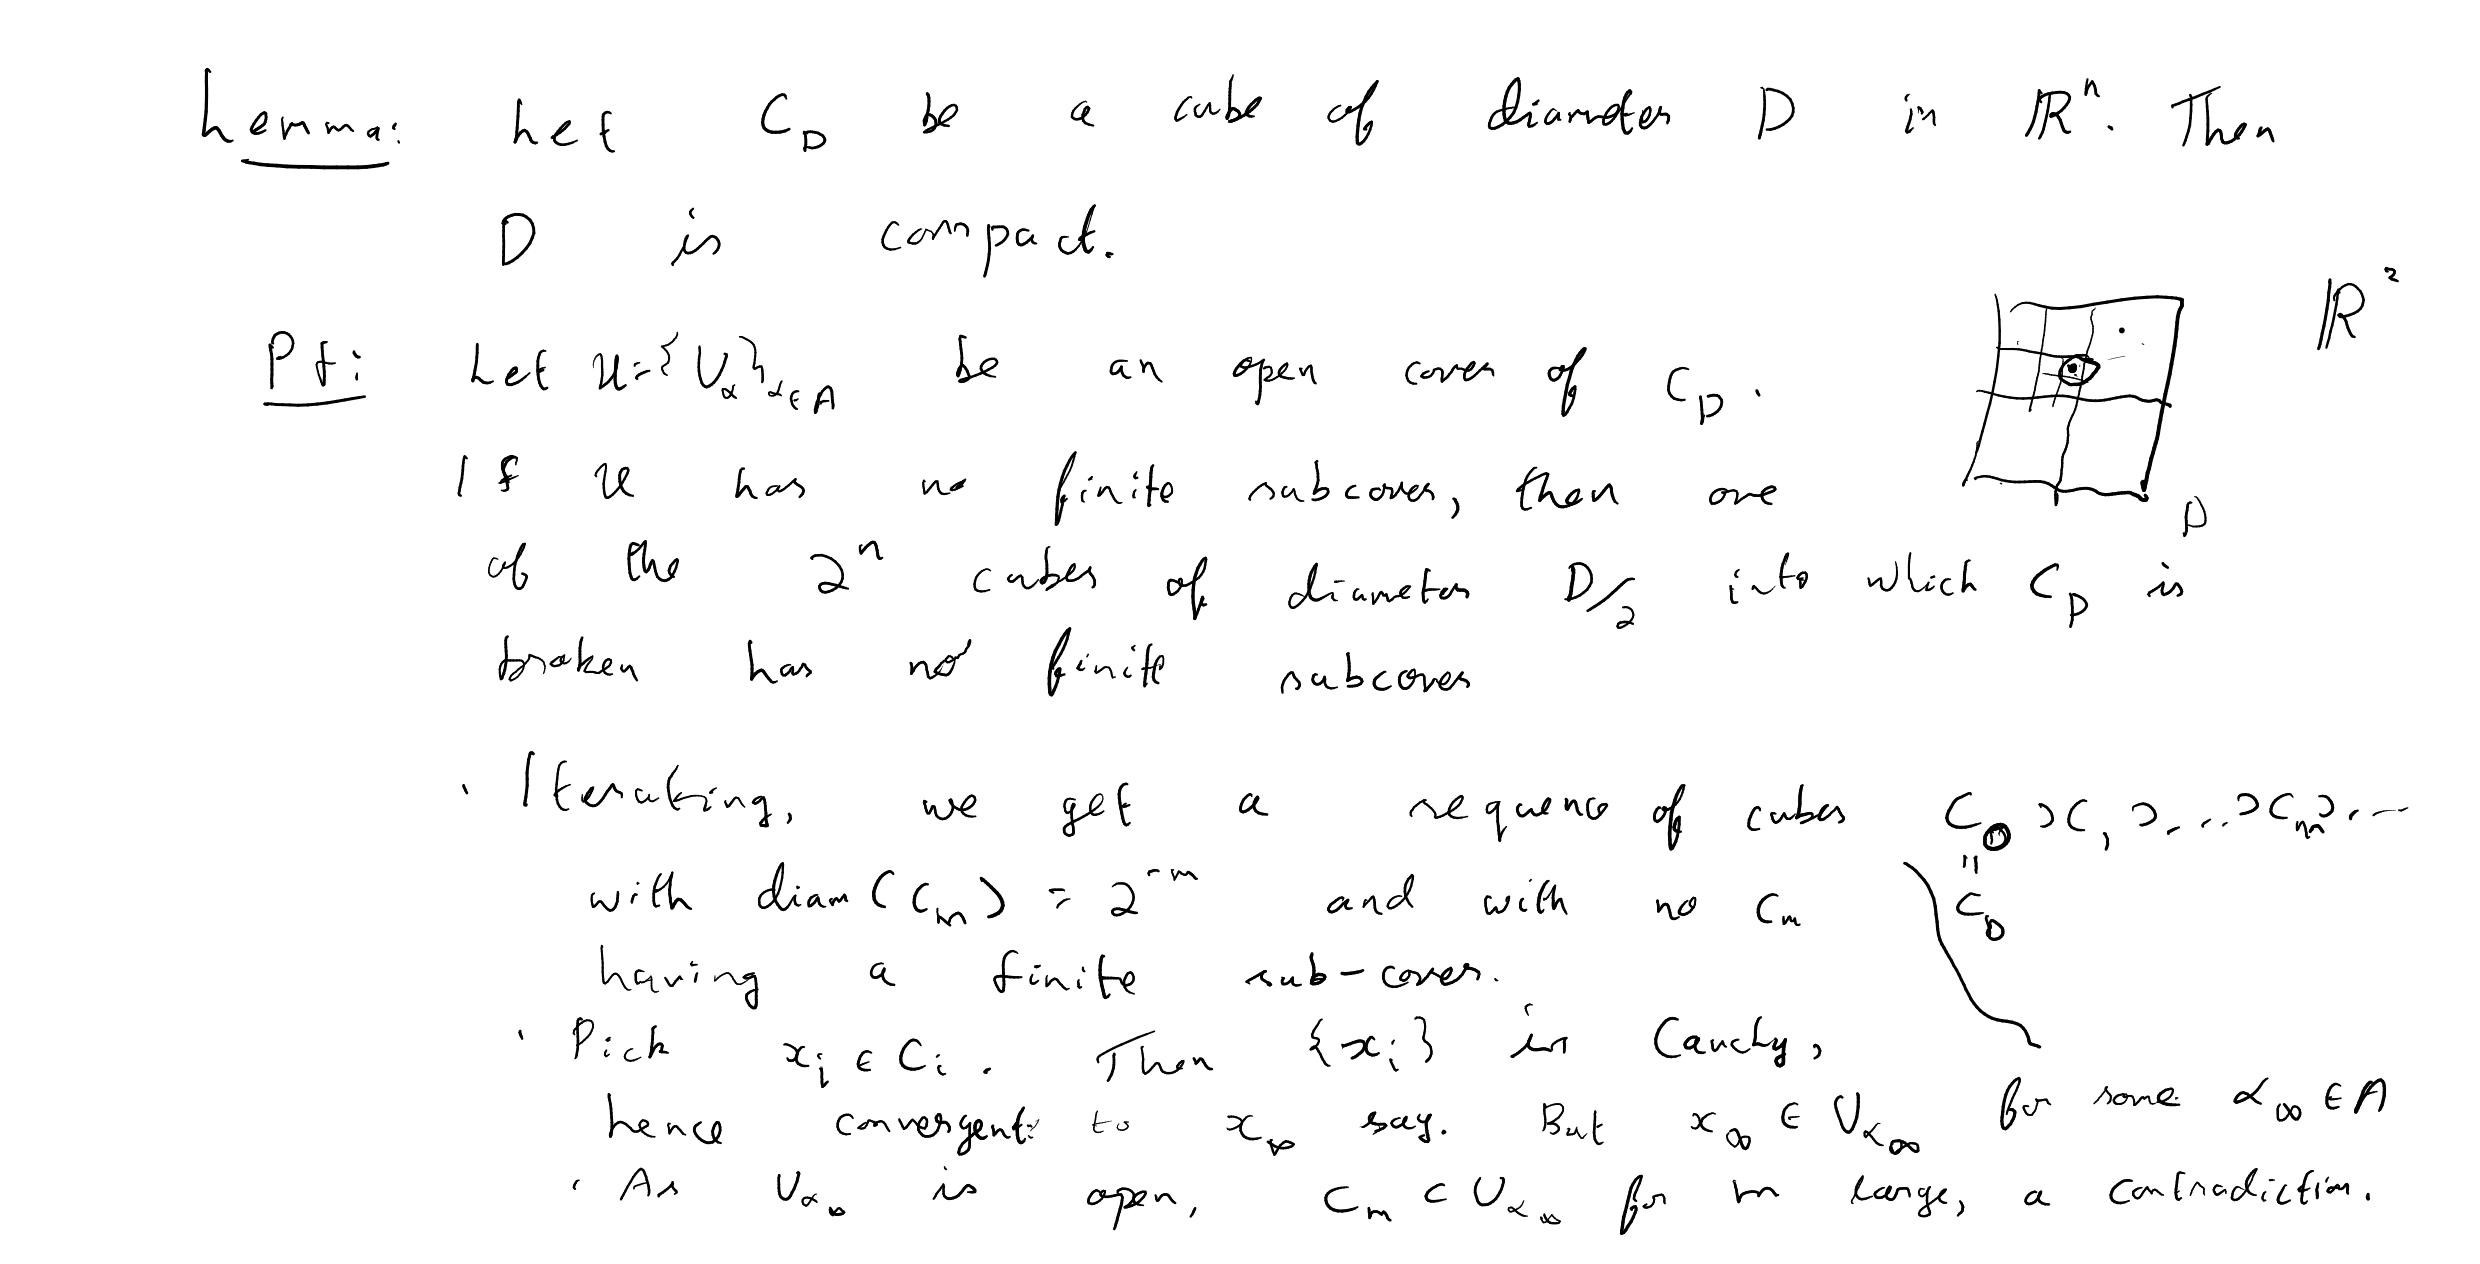 Lemma: Let C_D be a cube of diameter D in ℝⁿ. Then
D is compact.
ℝ²
Pf: Let 𝒰={U_α}_{α∈A} be an open cover of C_D.
If 𝒰 has no finite subcover, then one
D
of the 2ⁿ cubes of diameter D/2 into which C_D is
broken has no finite subcover
· Iterating, we get a sequence of cubes C_0 ⊃ C_1 ⊃ ... ⊃ C_m ⊃ ...
=
with diam(C_m) = 2^{-m} and with no C_m C_D
having a finite sub-cover.
· Pick x_i ∈ C_i. Then {x_i} is Cauchy,
hence convergent to x_∞ say. But x_∞ ∈ U_{α_∞} for some α_∞ ∈ A
· As U_{α_∞} is open, C_m ⊂ U_{α_∞} for m large, a contradiction.